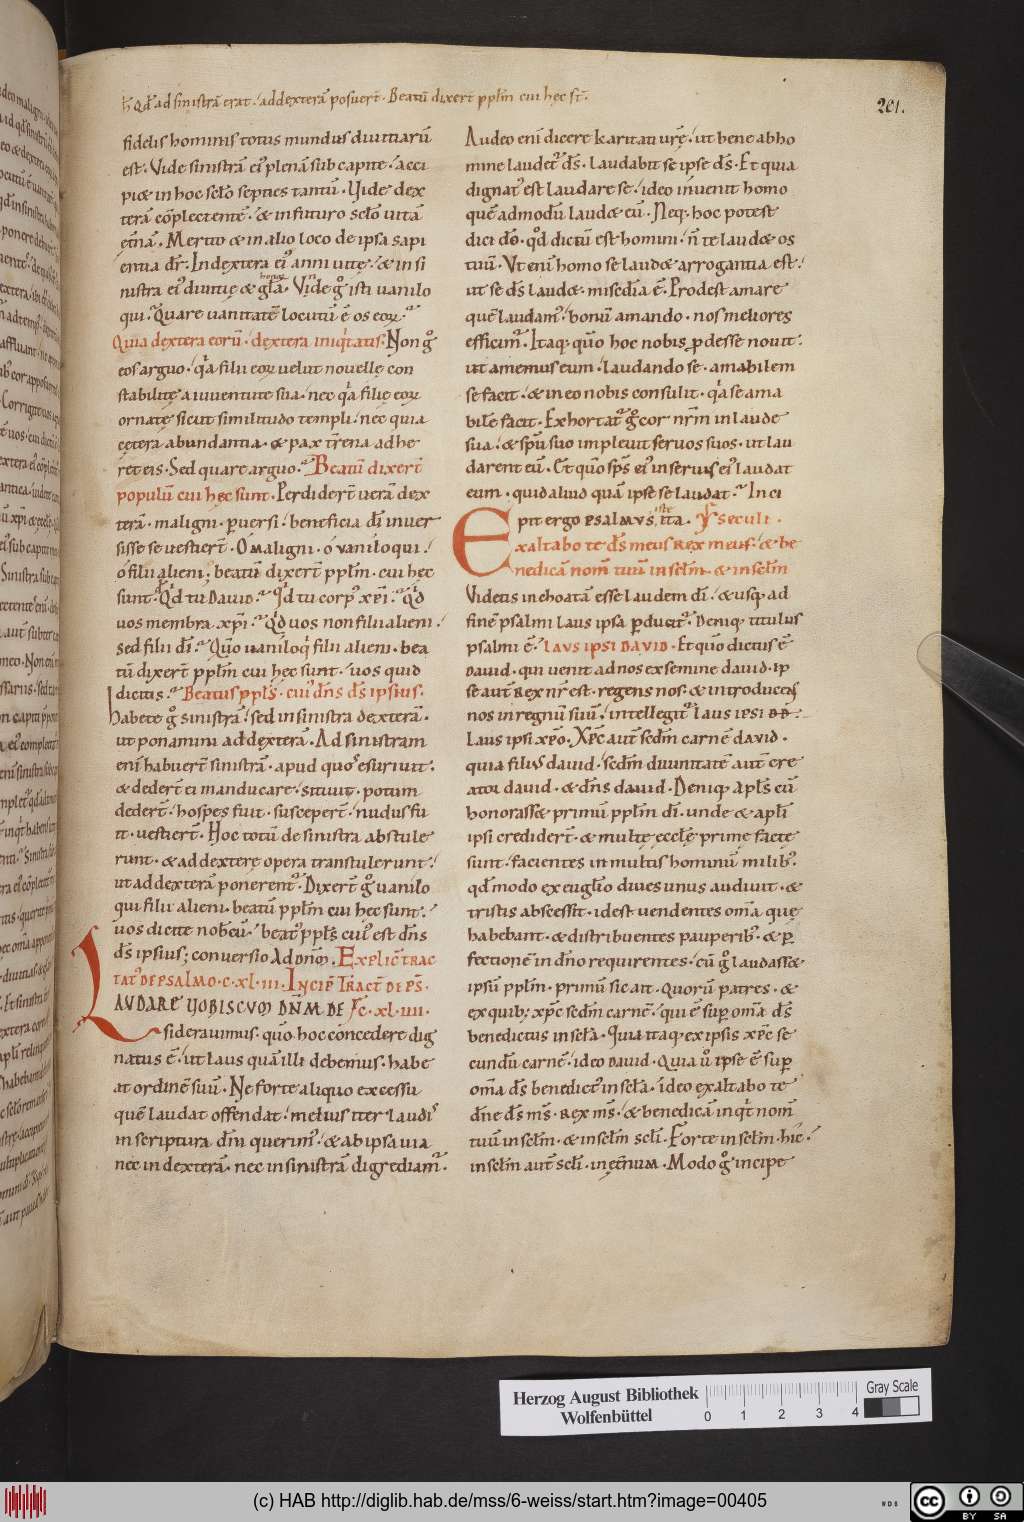 h̅ Qd̅ ad sinistrā erat / ad dexterā posuert̅ · Beatū dixert̅ pplm̅ cui hęc st̅ ·
201.
fidelis hominis totus mundus diuitiarū
est · Vide sinistrā ei' plenā sub capite / acci
piæ in hoc scl̅o septies tantū · Vide dex
terā cōplectentē / & in futuro scl̅o uitā
et̅nā · Merito & in alio loco de ipsa sapi
entia dr̅ · In dextera ei' anni uitę / & in si
nistra ei' diuitię & gl̅a · Vide g° isti uanilo
qui · Quare uanitatē locutū ē os eoꝝ ·
Quia dextera eorū · dextera iniq'tatis · Non g°
eos arguo · q'a filii eoꝝ uelut nouellę con
stabilitę a iuuentute sua / nec q'a filię eoꝝ
ornatę sicut similitudo templi / nec quia
cętera abundantia · & pax tr̅rena adhe
ret eis · Sed quare arguo · Beatū dixert̅
populū cui hęc sunt · Perdidert̅ uerā dex
terā · maligni · puersi · beneficia di̅ inuer
sisse se uestiert̅ · O maligni · o uaniloqui /
o filii alieni · beatū dixert̅ pplm̅ · cui hęc
sunt · Qd̅ tu DAUID · Qd̅ tu corp' xp̅i · q'd
uos membra xp̅i · Qd̅ uos non filii alieni ·
sed filii di̅ · Quo uaniloq' filii alieni · bea
tū dixert̅ pplm̅ cui hęc sunt · uos quid
dicitis · Beatus ppl̅s · cui' dn̅s ds̅ ipsius ·
habete g° sinistrā / sed in sinistra dexterā ·
ut ponamini ad dexterā · Ad sinistram
eni̅ habuert̅ sinistrā · apud quos esuriuit ·
& dedert̅ ei manducare / sitiuit · potum
dedert̅ / hospes fuit · suscepert̅ / nudus fu
it · uestiert̅ · Hoc totū de sinistra abstule
runt · & ad dexterę opera transtulerunt /
ut ad dexterā ponerent' · Dixert̅ g° uanilo
qui filii alieni · beatū pplm̅ cui hęc sunt /
uos dicite nob̅cū · beat' ppl̅s cui' est dn̅s
ds̅ ipsius ; conuersio AD DNM̅ · EXPLIC̅ TRAC
TAT' DE PSALMO · C · XL · III · INCIP̅ TRACT̅ DE PS̅ ·
LAUDARE UOBISCUM DN̅M DE Fc · XL · IIII ·
siderauimus · quo hoc concedere dig
natus ē / ut laus quā illi debemus / habe
at ordinē suū · Ne forte aliquo excessu
quē laudat offendat / melius iter laudis
in scriptura dn̅i querim' / & ab ipsa uia
nec in dexterā · nec in sinistrā digrediam' ·
Audeo eni̅ dicere karitati urę / ut bene ab ho
mine laudet' ds̅ · laudabit se ipse ds̅ · Et quia
dignat' est laudare se / ideo inuenit homo
quē admodū laudæ eū · Neq; hoc potest
dici dō · qd̅ dictū est homini / n̅ te laudæ os
tuū · Vt eni̅ homo se laudæ arrogantia est /
ut se ds̅ laudæ · misedi̅a ē · Prodest amare
quē laudam' / bonū amando · nos meliores
efficim' · Itaq; quo hoc nobis pdesse nouit /
ut amemus eum / laudando se · amabilem
se facit / & in eo nobis consulit · q'a se ama
bilē facit · Exhortat' g° cor nrm̅ in laude
sua / & spu̅ suo impleuit seruos suos · ut lau
darent eū · Et quo sps̅ ei' in seruis ei' laudat
eum · quid aliud quā ipse se laudat · Inci
pit ergo PSALMUS iste ita · Ps̅ seculi ·
Exaltabo te ds̅ meus REX meus / & be
nedicā nom̅ tuū in sclm̅ · & in sclm̅
Videtis inchoatā esse laudem di̅ / & usq; ad
finē psalmi laus ipsa pducit' · Deniq; titulus
psalmi ē · LAUS IPSI DAVID · Et quo dictus ē
DAUID · qui uenit ad nos ex semine dauid · ip
se aut̅ REX nr̅ est · regens nos · & introducens
nos in regnū suū / intellegit' laus IPSI DD̅ ·
Laus ipsi xp̅o · Xp̅c aut̅ scdm̅ carnē DAVID ·
quia filius dauid / scdm̅ diuinitatē aut̅ cre
ator dauid · & dn̅s dauid · Deniq; apl̅s cū
honorassæ primū pplm̅ di̅ · unde & apl̅i
ipsi credidert̅ · & multę eccl̅ę primę factę
sunt / facientes in multis hominū milib' ·
qd̅ modo ex euglio diues unus audiuit · &
tristis abscessit · idest uendentes om̅a quę
habebant · & distribuentes pauperib' · & p
fectionē in dn̅o requirentes / cū g° laudassæ
ipsū pplm̅ · primū sic ait · quorū patres · &
ex quib; xp̅c scdm̅ carnē / qui ē sup om̅a ds̅
benedictus in scl̅a · Quia itaq; ex ipsis xp̅c se
cundū carnē / ideo DAUID · Quia u° ipse ē sup
om̅a ds̅ benedict' in scl̅a · ideo exaltabo te
dn̅e ds̅ ms̅ · REX ms̅ · & benedicā inq't nom̅
tuū in sclm̅ · & in sclm̅ scl̅i · Forte in sclm̅ · hic /
in sclm̅ aut̅ scl̅i · in et̅num · Modo g° incipe
Herzog August Bibliothek
Wolfenbüttel
0 1 2 3 4
Gray Scale
(c) HAB http://diglib.hab.de/mss/6-weiss/start.htm?image=00405
WDB
cc BY SA